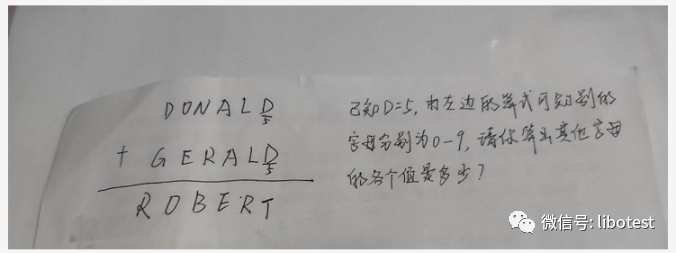 DONALD
5
+ GERALD
5
ROBERT
已知D=5，由左边的算式可知别的
字母分别为0-9，请你算出其他字母
的各个值是多少？
微信号: libotest